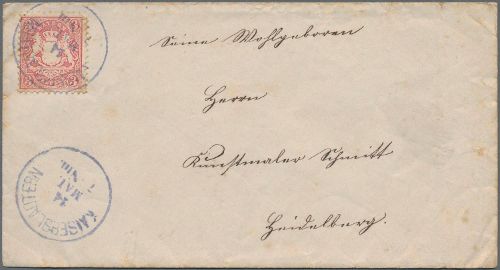 Seine Wohlgeboren
Herrn
Kunstmaler Schmitt
Heidelberg.
KAISERSLAUTERN
14
MAI